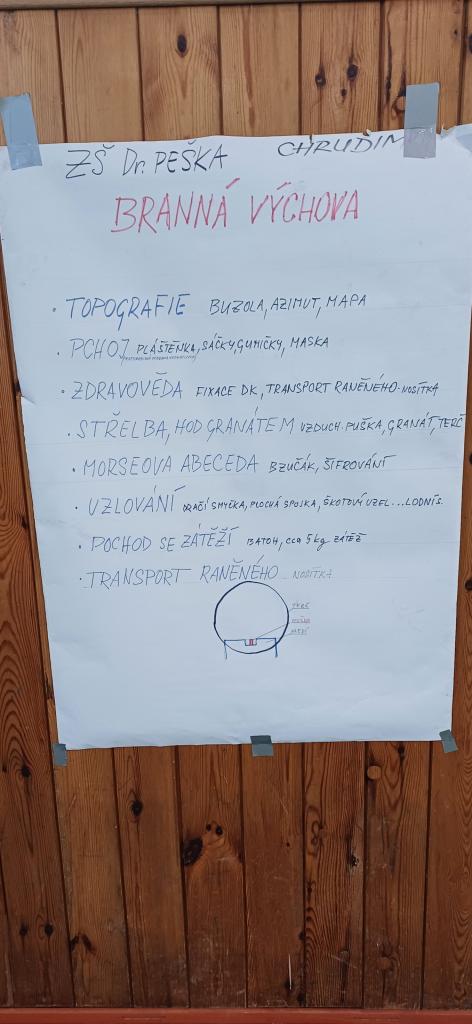 ZŠ Dr. PEŠKA CHRUDIM
BRANNÁ VÝCHOVA
· TOPOGRAFIE BUZOLA, AZIMUT, MAPA
· PCHO, PLÁŠTĚNKA, SÁČKY, GUMIČKY, MASKA
· ZDRAVOVĚDA FIXACE DK, TRANSPORT RANĚNÉHO-NOSÍTKA
· STŘELBA, HOD GRANÁTEM VZDUCH. PUŠKA, GRANÁT, TERČ
· MORSEOVA ABECEDA BZUČÁK, ŠIFROVÁNÍ
· UZLOVÁNÍ DRAČÍ SMYČKA, PLOCHÁ SPOJKA, ŠKOTOVÝ UZEL...LODNÍ S.
· POCHOD SE ZÁTĚŽÍ BATOH, cca 5kg ZÁTĚŽ
· TRANSPORT RANĚNÉHO NOSÍTKA
TERČ
MUŠKA